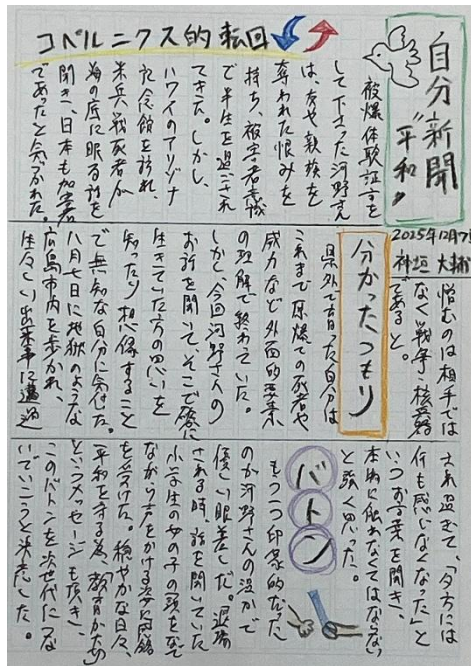 自分新聞
〝平和〟
2025年12月7日
神垣 大輔
コペルニクス的転回
被爆体験証言を
して下さった河野さん
は、友や親族を
奪われた恨みを
持ち、被害者意識
で半生を過ごされ
てきた。しかし、
ハワイのアリゾナ
記念館を訪れ、
米兵戦死者が
海の底に眠る話を
聞き、日本も加害者
であったと気づかれた。
憎むのは相手では
なく戦争・核兵器
であると。
分かったつもり
県外で育った自分は
これまで原爆での死者や
威力など外面的要素
の理解で終わっていた。
しかし、今回河野さんの
お話を聞いて、そこで確に
生きていた方の思いを
知ったり想像すること
で無知な自分に気付いた。
八月七日に地獄のような
広島市内を歩かれ、
生々しい出来事に遭遇
され過ぎて、「夕方には
何も感じなくなった」と
いうお言葉を聞き、
本物に触れなくてはならない
と強く思った。
バトン
もう一つ印象的だった
のが河野さんの温かで
優しい眼差しだ。退場
される時、話を聞いていた
小学生の女の子の頭をなで
ながら声をかける姿に感銘
を受けた。穏やかな日々、
平和を守る為、教育が大切
というメッセージも頂き、
このバトンを次世代につな
いでいこうと決意した。